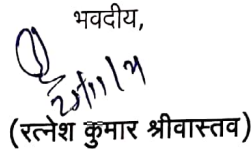 भवदीय,
(रत्नेश कुमार श्रीवास्तव)